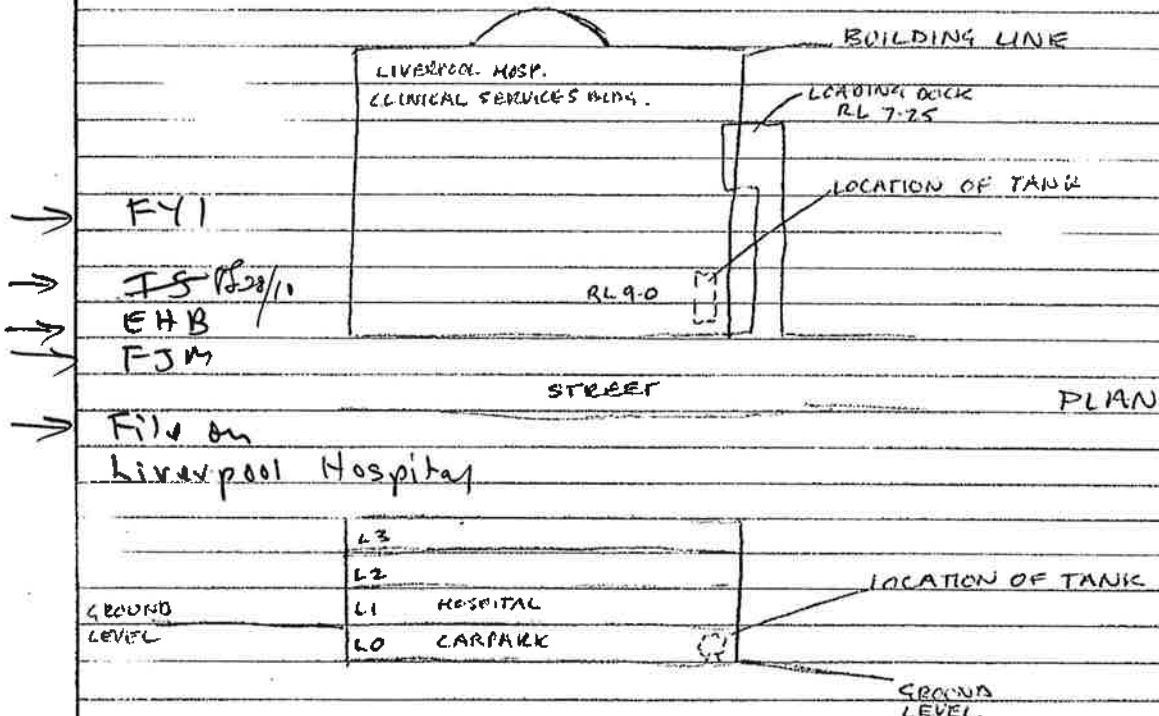 BUILDING LINE
LIVERPOOL HOSP.
CLINICAL SERVICES BLDG.
LOADING DOCK
RL 7.25
LOCATION OF TANK
FYI
28/11
RL 9.0
EHB
FJM
STREET
PLAN
File on
Liverpool Hospital
L3
L2
LOCATION OF TANK
GROUND
LEVEL
L1 HOSPITAL
L0 CARPARK
GROUND
LEVEL